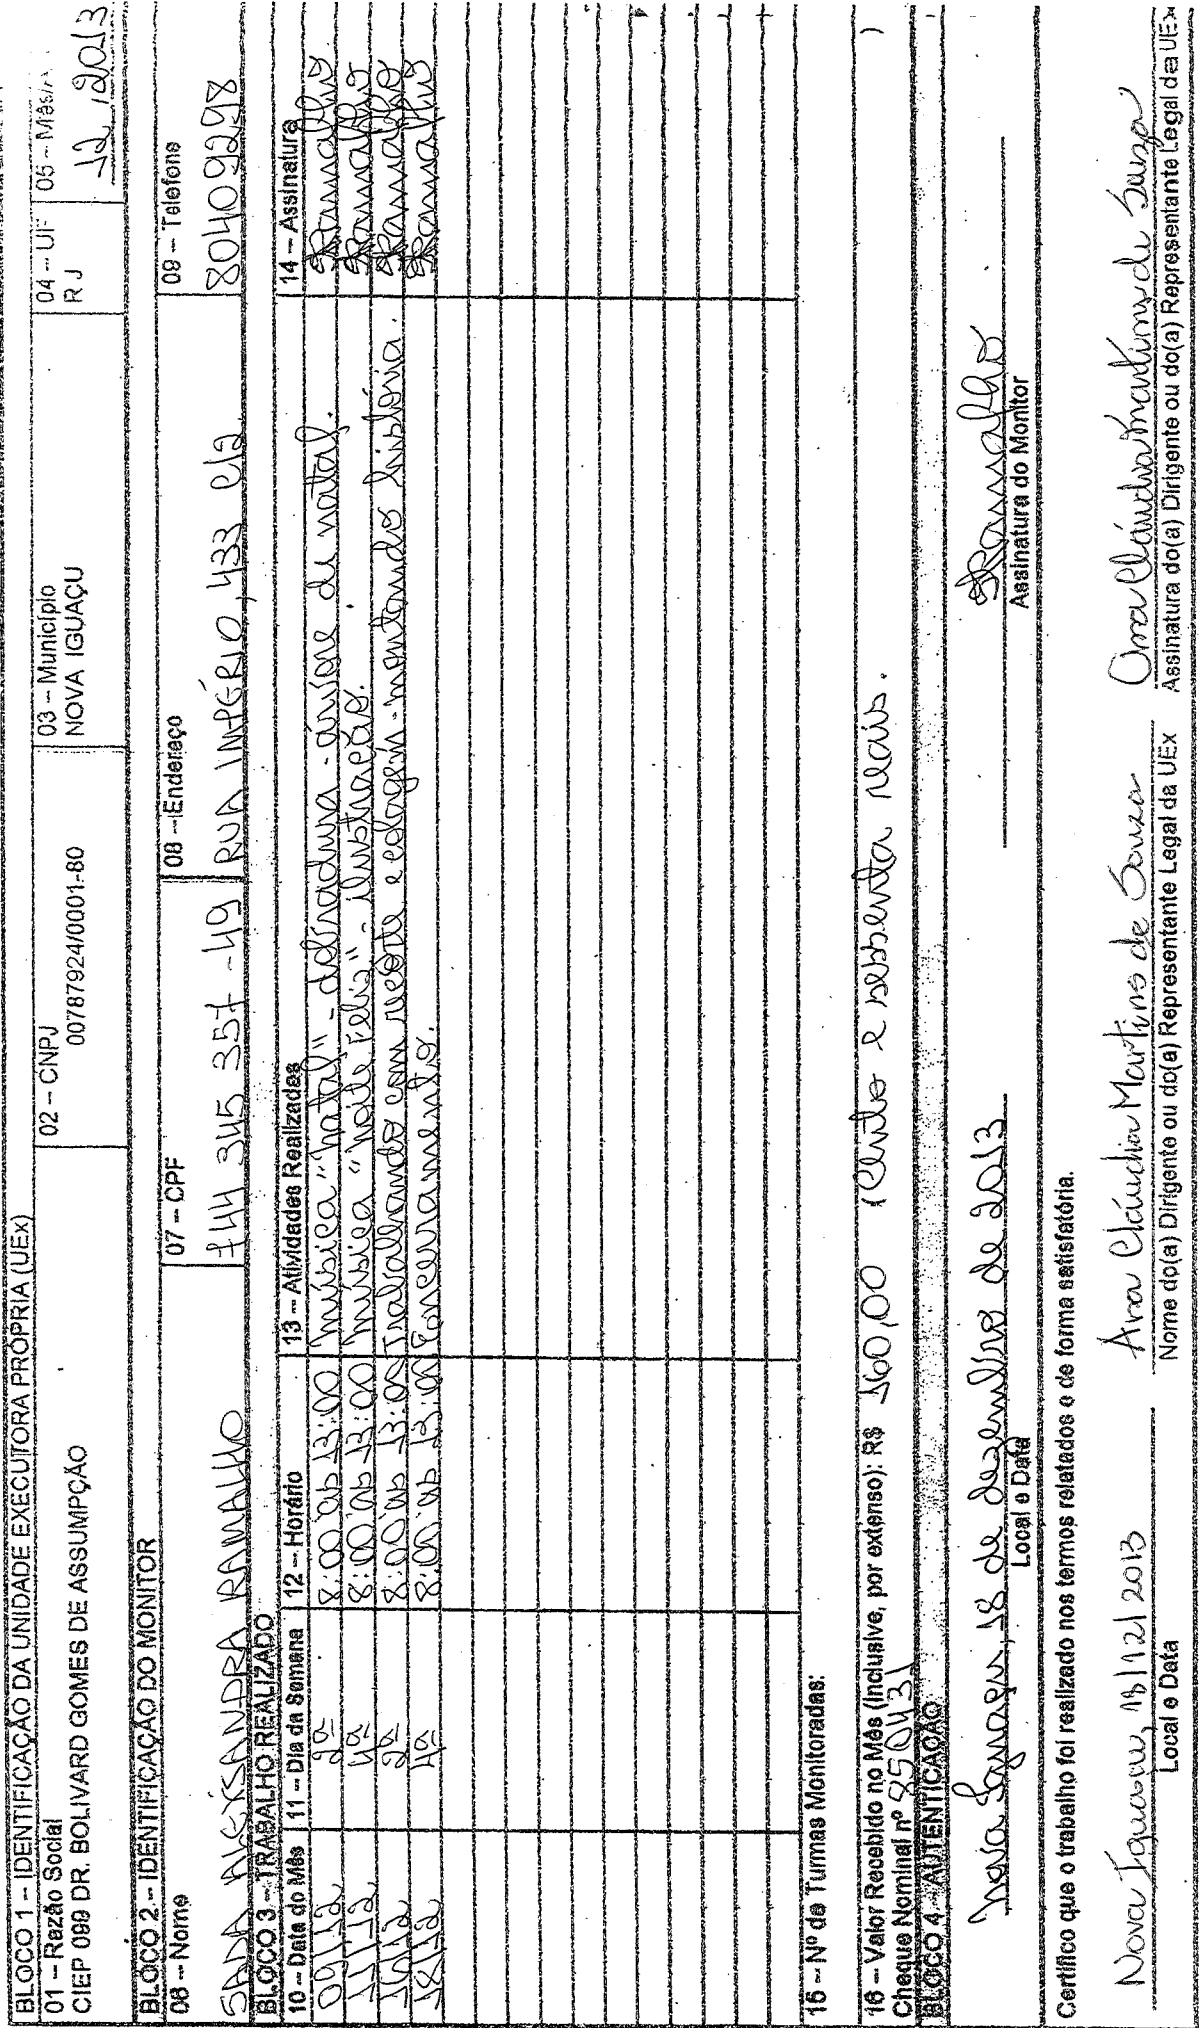 BLOCO 1 – IDENTIFICAÇÃO DA UNIDADE EXECUTORA PRÓPRIA (UEx)
01 – Razão Social
CIEP 099 DR. BOLIVARD GOMES DE ASSUMPÇÃO
02 – CNPJ
00787924/0001-80
03 – Município
NOVA IGUAÇU
04 – UF
RJ
05 – Mês/A
12/2013
BLOCO 2 – IDENTIFICAÇÃO DO MONITOR
06 – Nome
RAMALHO
07 – CPF
744 345 357 - 49
08 – Endereço
RUA IMPÉRIO, 433
09 – Telefone
80409298
BLOCO 3 – TRABALHO REALIZADO
10 – Data do Mês 11 – Dia da Semana 12 – Horário 13 – Atividades Realizadas 14 – Assinatura
09/12 2ª 8:00 às 13:00 música "natal" - dobradura - árvore de natal. Ramalho
11/12 4ª 8:00 às 13:00 música "noite feliz" - ilustração. Ramalho
16/12 2ª 8:00 às 13:00 Trabalhando com recorte e colagem - montando história. Ramalho
18/12 4ª 8:00 às 13:00 Encerramento. Ramalho
15 – Nº de Turmas Monitoradas:
16 – Valor Recebido no Mês (Inclusive, por extenso): R$ 160,00 (Cento e sessenta reais. )
Cheque Nominal nº 850431
BLOCO 4 – AUTENTICAÇÃO
Nova Iguaçu, 18 de dezembro de 2013
Local e Data
Ramalho
Assinatura do Monitor
Certifico que o trabalho foi realizado nos termos relatados e de forma satisfatória.
Nova Iguacu, 18/12/2013
Local e Data
Ana Cláudia Martins de Souza
Nome do(a) Dirigente ou do(a) Representante Legal da UEx
Ana Cláudia Martins de Souza
Assinatura do(a) Dirigente ou do(a) Representante Legal da UEx